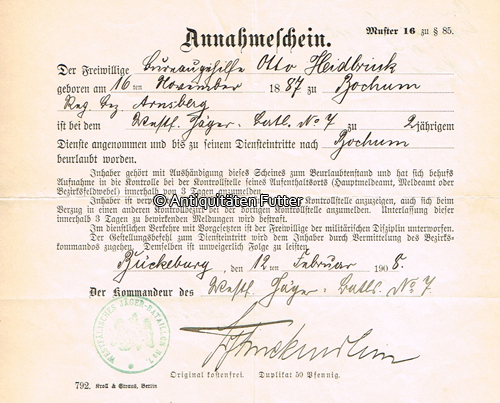 Muster 16 zu § 85.
Annahmeschein.
Der Freiwillige Bureaugehilfe Otto Heidbrink
geboren am 16 ten November 1887 zu Bochum
Reg. Bez. Arnsberg
ist bei dem Westf. Jäger-Batl. No 7 zu 2jährigem
Dienste angenommen und bis zu seinem Diensteintritte nach Bochum
beurlaubt worden.
Inhaber gehört mit Aushändigung dieses Scheines zum Beurlaubtenstand und hat sich behufs
Aufnahme in die Kontrolle bei der Kontrollstelle seines Aufenthaltsorts (Hauptmeldeamt, Meldeamt oder
Bezirksfeldwebel) innerhalb von 3 Tagen anzumelden.
Inhaber ist Kontrollstelle anzuzeigen, auch sich beim
Verzug in einen anderen Kontrollbezirk bei der dortigen Kontrollstelle anzumelden. Unterlassung dieser
innerhalb 3 Tagen zu bewirkenden Meldungen wird bestraft.
Im dienstlichen Verkehr mit Vorgesetzten ist der Freiwillige der militärischen Disziplin unterworfen.
Der Gestellungsbefehl zum Diensteintritt wird dem Inhaber durch Vermittelung des Bezirks-
kommandos zugehen. Demselben ist unweigerlich Folge zu leisten.
© Antiquitäten Futter
Bückeburg, den 12 ten Februar 1908.
Der Kommandeur des Westf. Jäger-Batls. No 7.
WESTFÄLISCHES JÄGER-BATAILLON No 7
Original kostenfrei. Duplikat 50 Pfennig.
792. Kroll & Strauß, Berlin